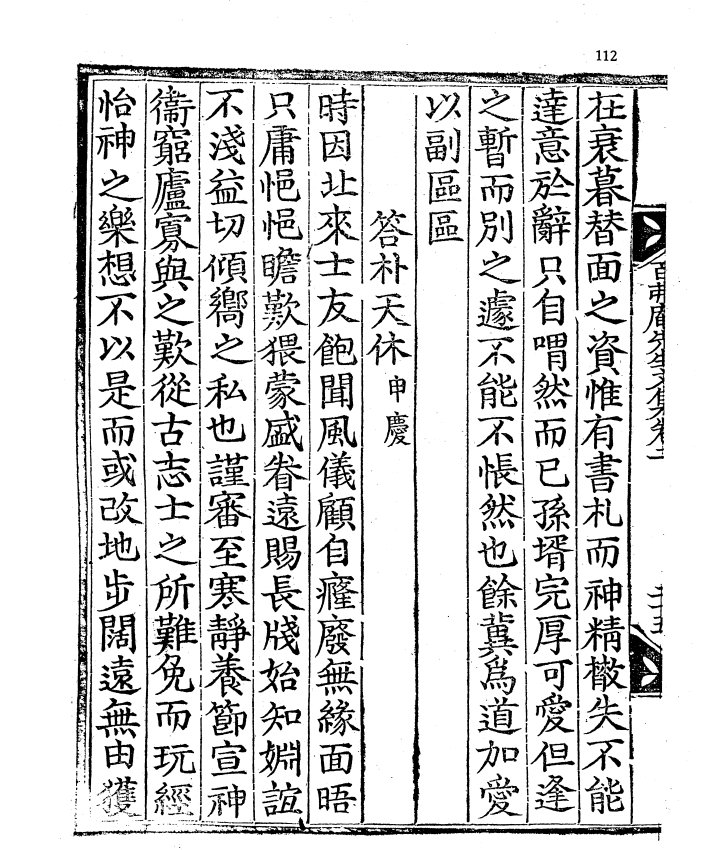 112
在衰暮替面之資惟有書札而神精失不能
達意於辭只自喟然而已孫壻完厚可愛但逢
之暫而別之遽不能不悵然也餘冀爲道加愛
以副區區
答朴天休申慶
時因北來士友飽聞風儀顧自癃廢無緣面晤
只庸悒悒瞻歎猥蒙盛眷遠賜長牋始知婣誼
不淺益切傾嚮之私也謹審至寒靜養節宣神
衞窮廬寡與之歎從古志士之所難免而玩經
怡神之樂想不以是而或改地步闊遠無由獲